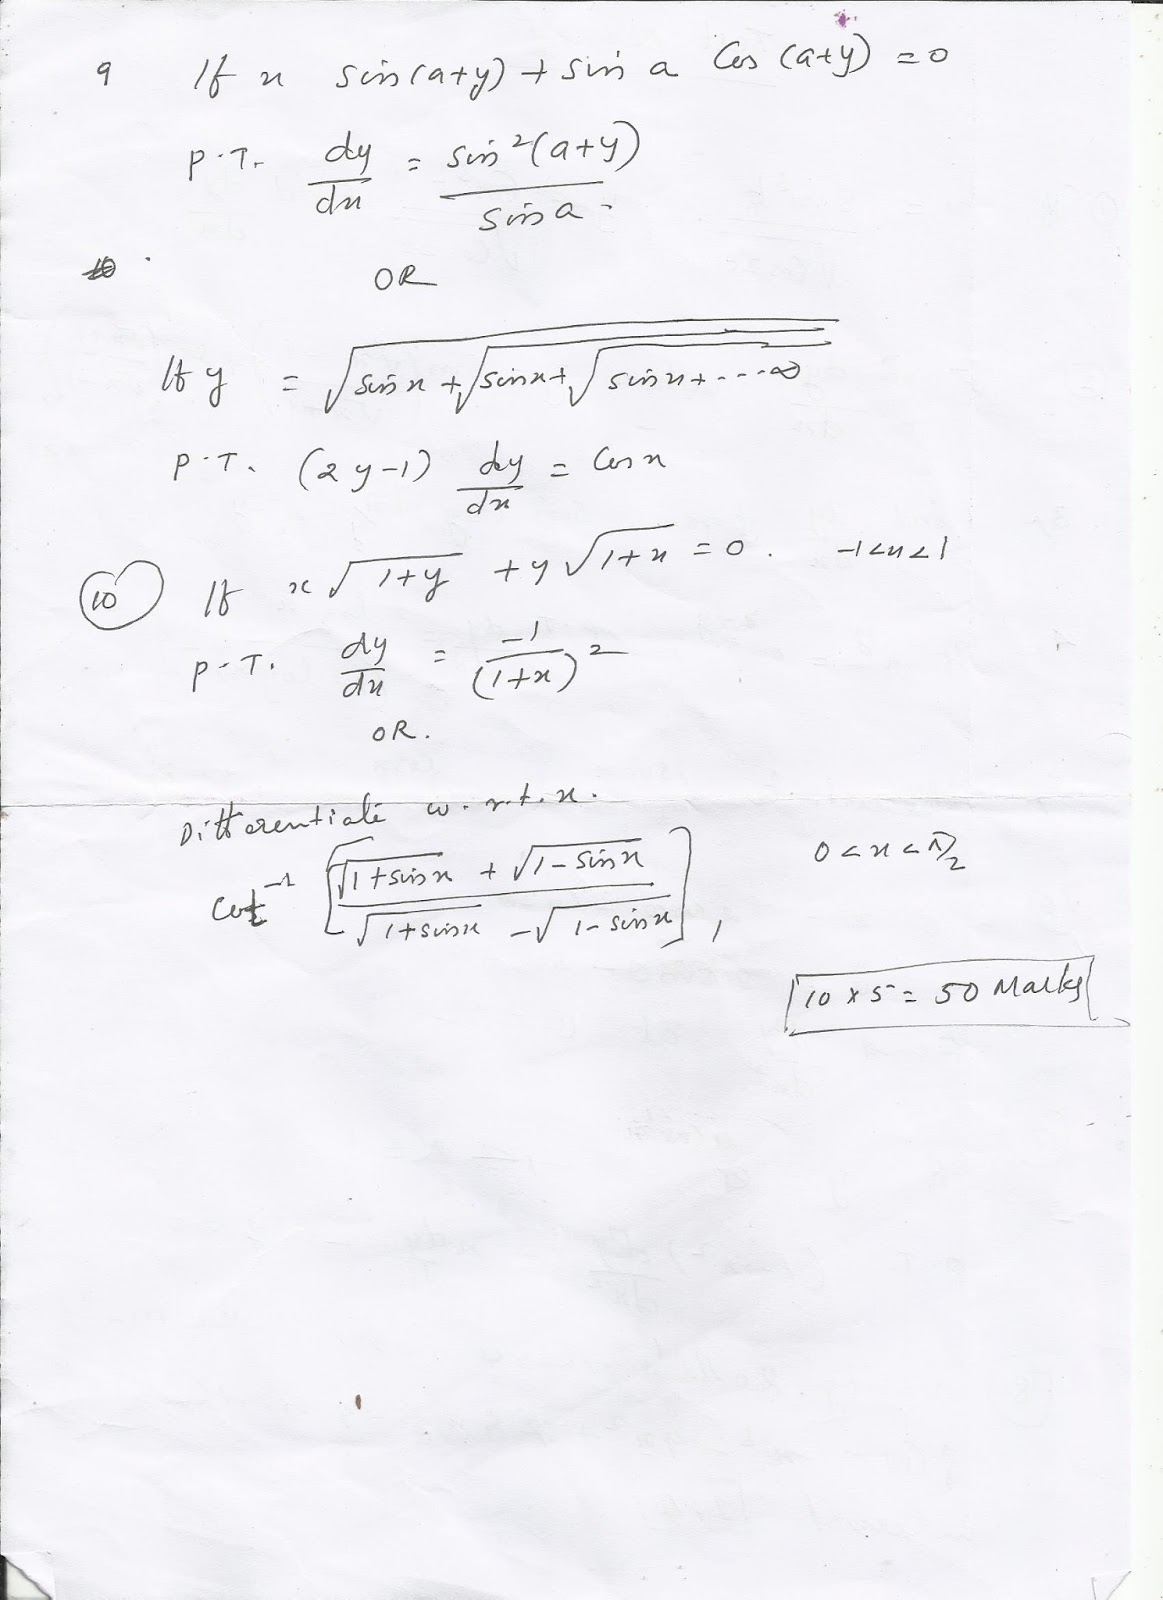 9 If x sin(a+y) + sin a Cos (a+y) = 0
P.T. dy/dx = sin²(a+y)/sin a.
OR
If y = √(sin x + √(sin x + √(sin x + ....∞
P.T. (2y-1) dy/dx = Cos x
10 If x√(1+y) + y√(1+x) = 0. -1<x<1
P.T. dy/dx = -1/(1+x)²
OR.
Differentiate w.r.t.x.
Cot⁻¹ [(√(1+sinx) + √(1-sinx))/(√(1+sinx) - √(1-sinx))], 0<x<π/2
10 x 5 = 50 Marks